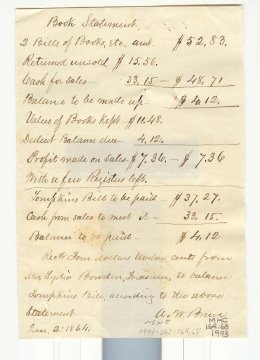 Book Statement.
2 Bills of Books, etc. amt. $52.83.
Returned unsold, $15.56.
Cash for sales 33.15 – $48.71
Balance to be made up $4.12.
Value of Books kept $11.48.
Deduct Balance due 4.12.
Profit made on sales $7.36 – $7.36
With a few Registers left.
Tompkins Bill to be paid $37.27.
Cash from sales to meet it – 33.15.
Balance to be paid – $4.12
Recd four dollars twelve cents from
Mrs Lydia Bowden, Treasurer, to balance
Tompkins Bill according to the above
Statement. A. W.
Jan. 2. 1864.
MHC
164.68
1993